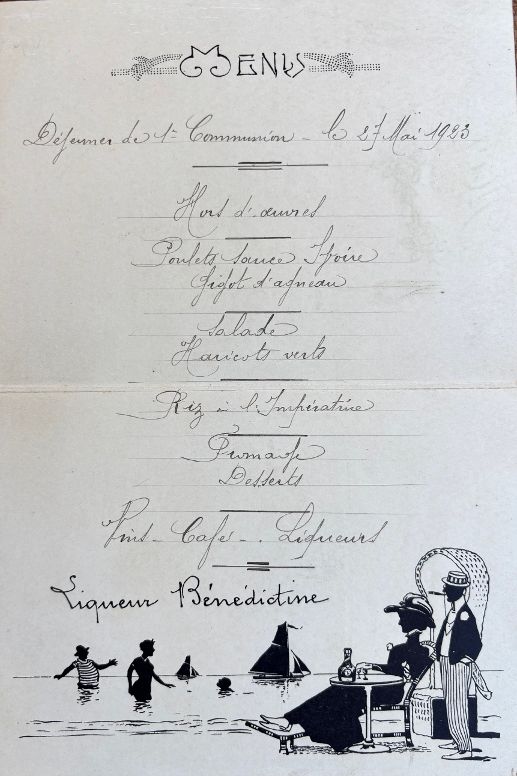 MENUS
Déjeuner de 1re Communion - le 27 Mai 1923
Hors d'œuvres
Poulets sauce Ivoire
Gigot d'agneau
Salade
Haricots verts
Riz à l'Impératrice
Fromage
Desserts
Vins - Café - . Liqueurs
Liqueur Bénédictine